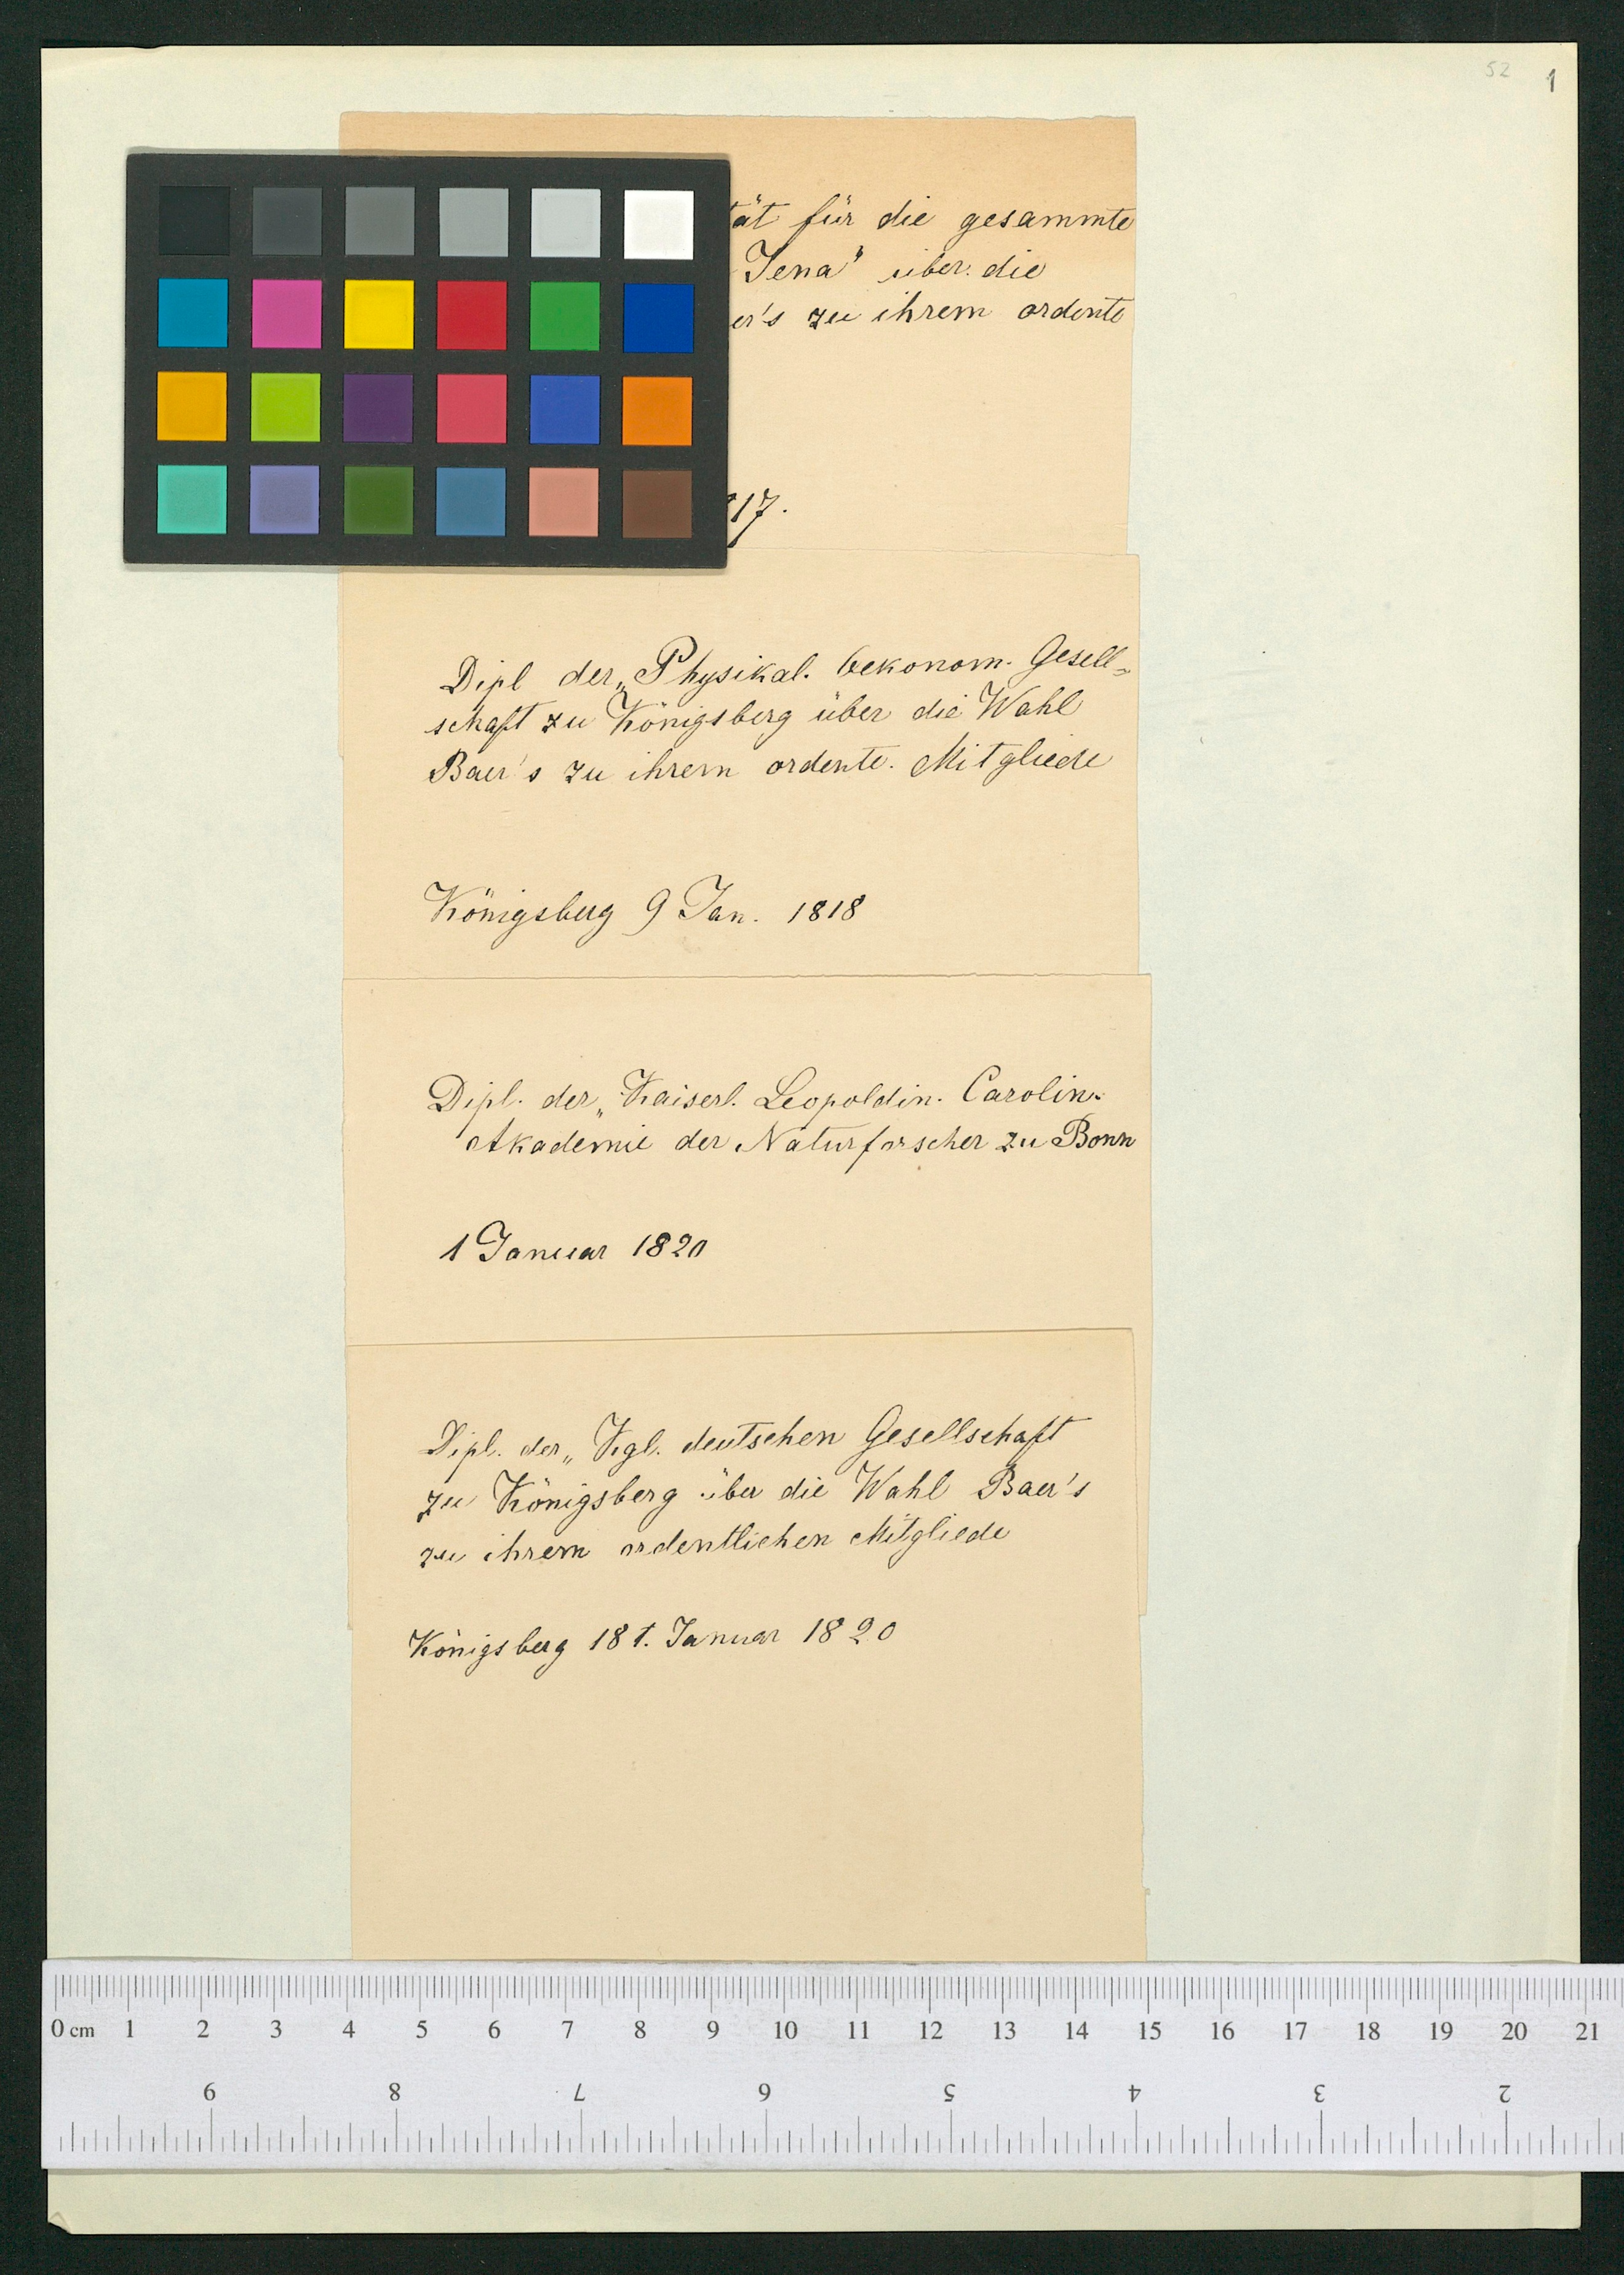 52 1
tät für die gesammte
Jena" über die
er's zu ihrem ordentl
17.
Dipl der „Physikal. Oekonom. Gesell-
schaft zu Königsberg über die Wahl
Baer's zu ihrem ordentl. Mitgliede
Königsberg 9 Jan. 1818
Dipl. der „Kaiserl. Leopoldin. Carolin.
Akademie der Naturforscher zu Bonn
1 Januar 1820
Dipl. der „Kgl. deutschen Gesellschaft
zu Königsberg über die Wahl Baer's
zu ihrem ordentlichen Mitgliede
Königsberg 18 t. Januar 1820
0 cm 1 2 3 4 5 6 7 8 9 10 11 12 13 14 15 16 17 18 19 20 21
9 8 7 6 5 4 3 2